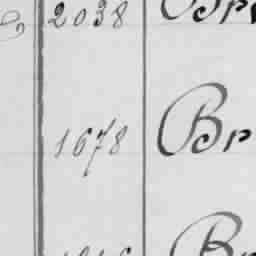 2038 Br
1678 Br
Br